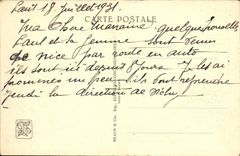 Paris 18 Juillet 1931.
CARTE POSTALE
Ma Chère Marraine quelques nouvelles
Paul et sa femme sont venus
de Nice par route en auto
ils sont ici depuis 8 jours Je les ai
promenés un peu. Ils vont reprendre
jeudi la direction de Vichy
BRAUN & Cie